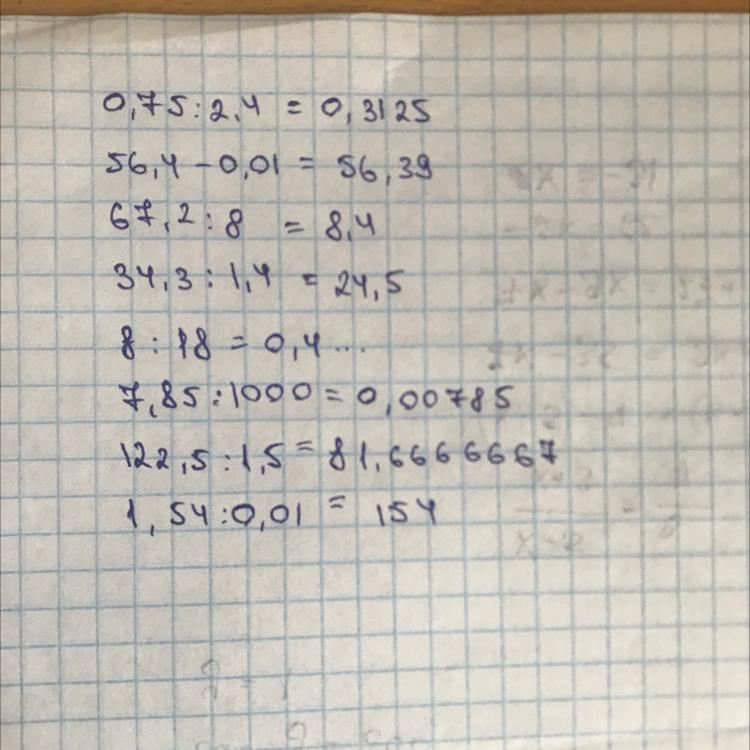 0,75:2,4 = 0,3125
56,4-0,01 = 56,39
67,2:8 = 8,4
34,3:1,4 = 24,5
8:18 = 0,4...
7,85:1000 = 0,00785
122,5:1,5 = 81,6666667
1,54:0,01 = 154